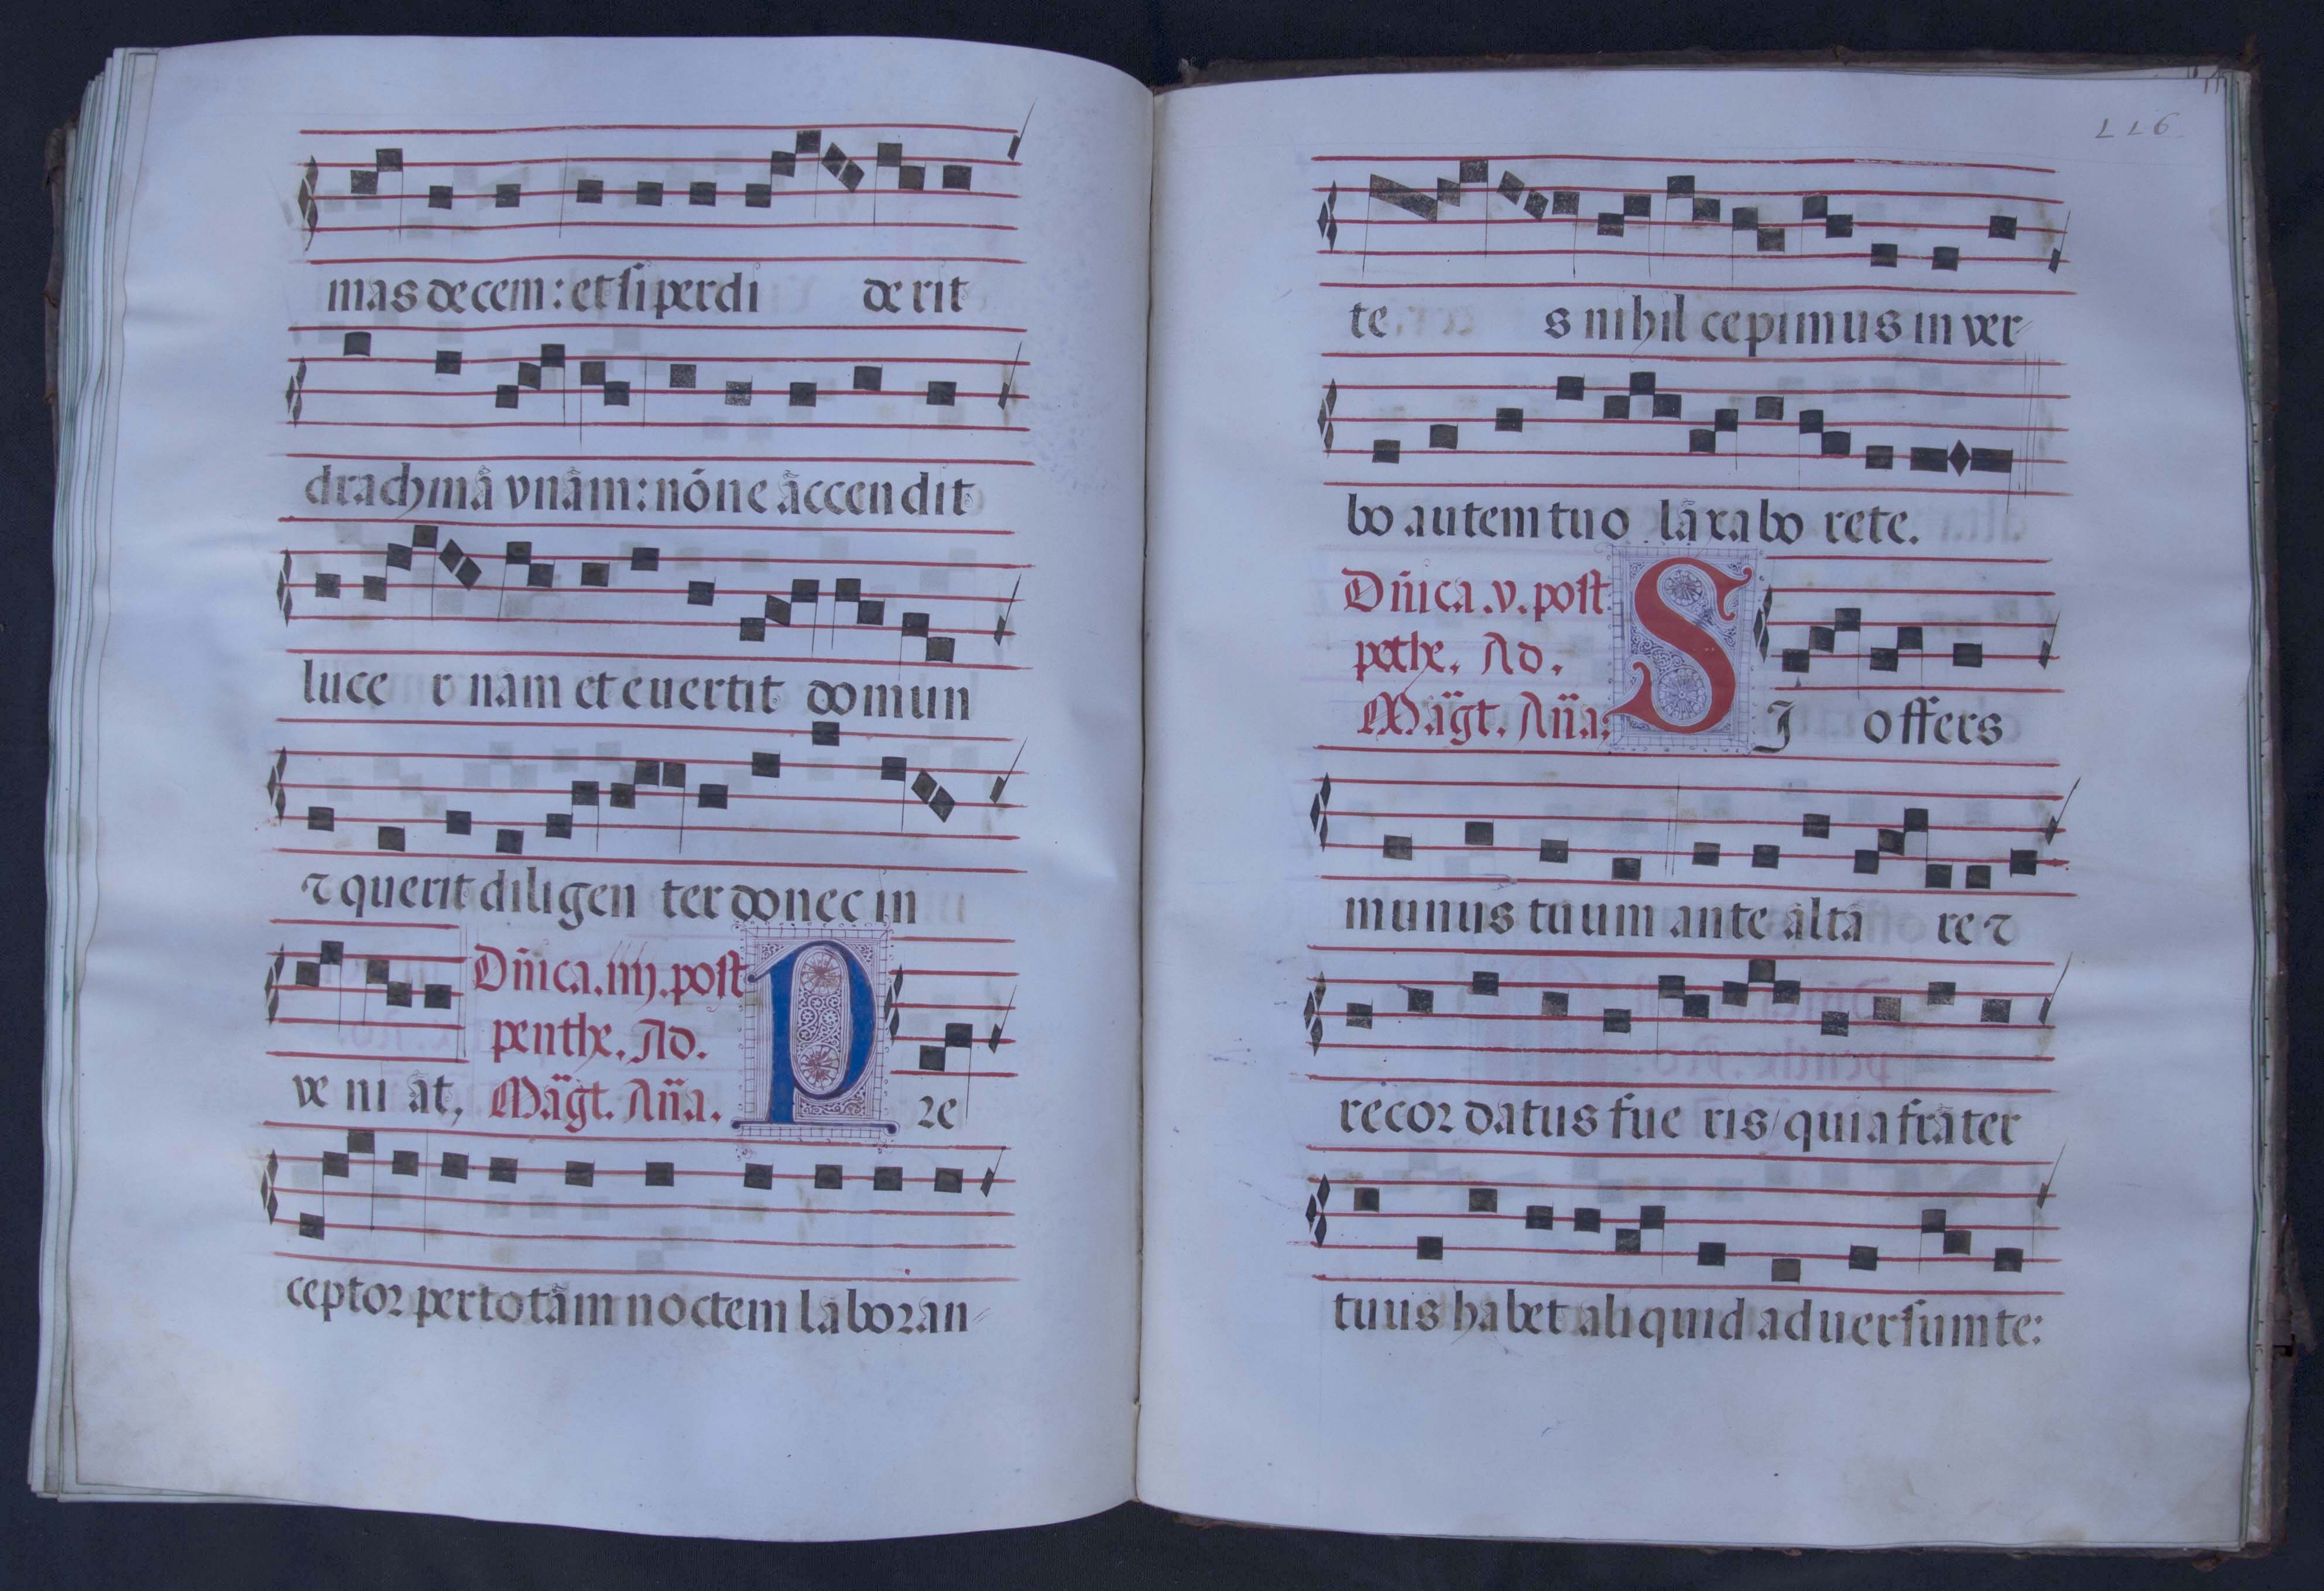 mas decem: et si perdi derit
drachmã vnam: nóne accendit
luce r nam et euertit domun
⁊ querit diligen ter donec in
Dñica.iiij.post
penthe. Ad.
Mãgt. Añã.
ve ni at,
P re
ceptor per totam noctem laboran⸗
116
te s nihil cepimus in ver⸗
bo autem tuo laxabo rete.
Dñica.v.post
pethe. Ad.
Mãgt. Añã:
S I offers
munus tuum ante alta re ⁊
recordatus fue ris/quia frater
tuus habet aliquid aduersum te: